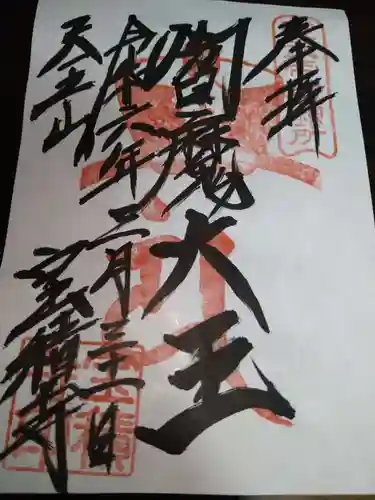 奉拝
閻魔大王
令和六年二月二十一日
天王山
宝積寺